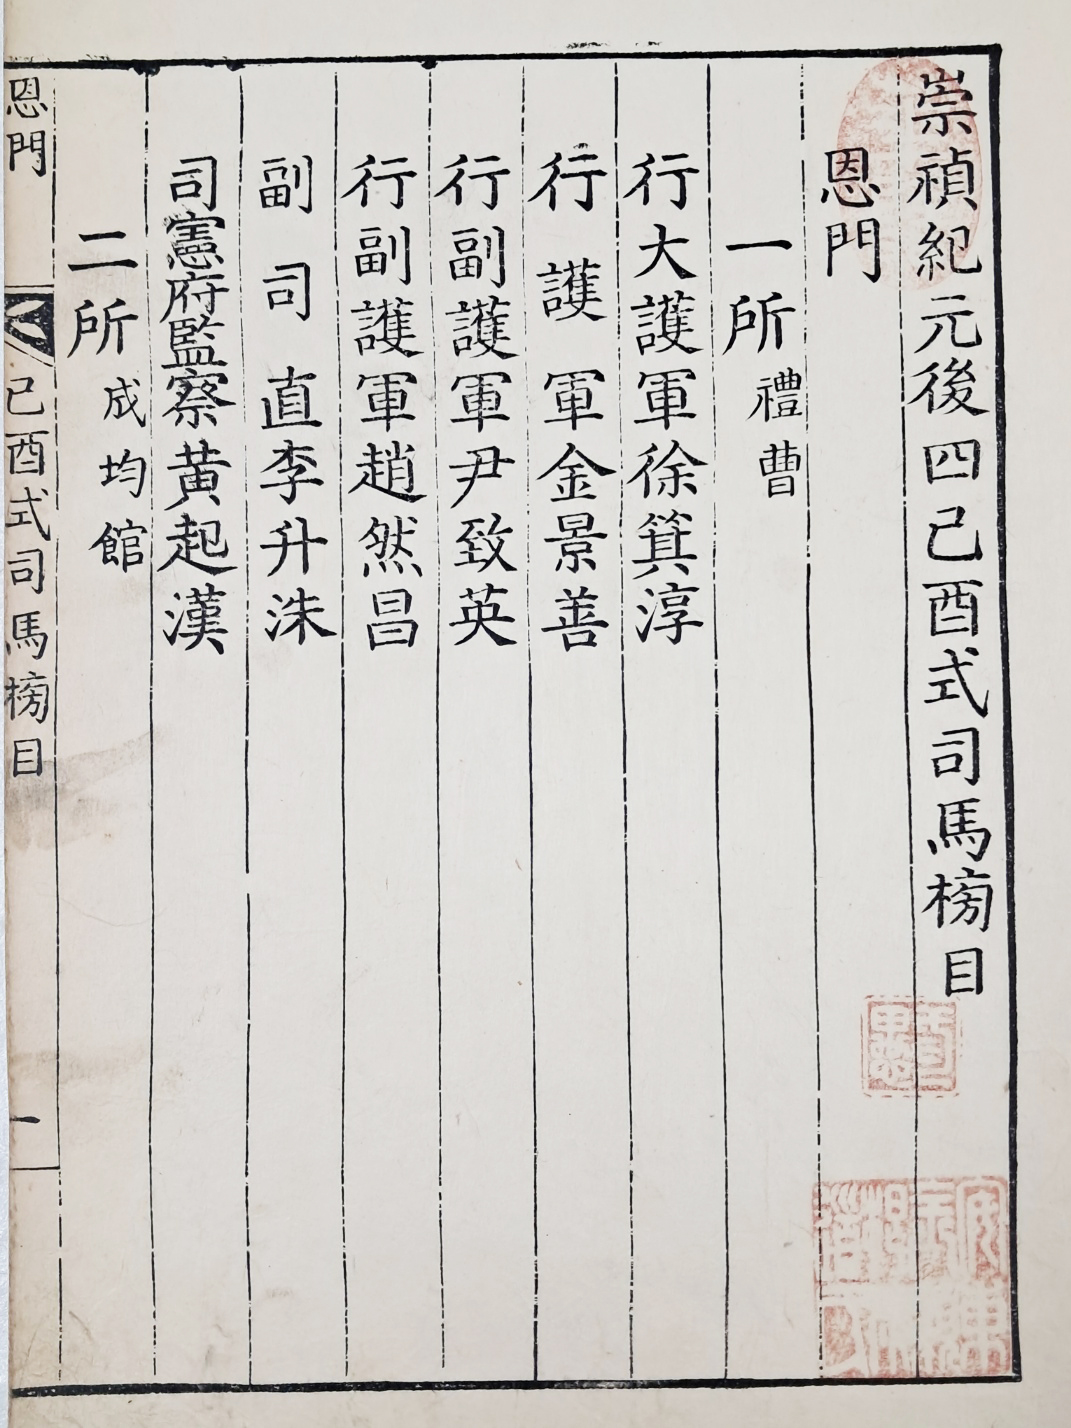 崇禎紀元後四己酉式司馬榜目
恩門
一所禮曹
行大護軍徐箕淳
行護軍金景善
行副護軍尹致英
行副護軍趙然昌
副司直李升洙
司憲府監察黃起漢
二所成均館
恩門 己酉式司馬榜目 一